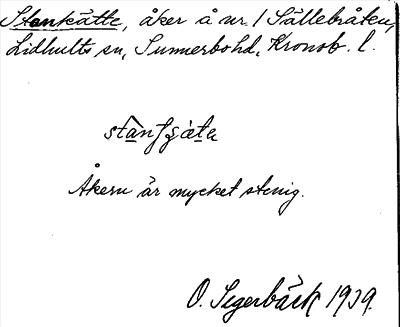 Stankätte, åker å nr. 1 Sällebråten,
Lidhults sn, Sunnerbo hd, Kronob. l.
Åkern är mycket stenig.
O. Segerbäck 1939.